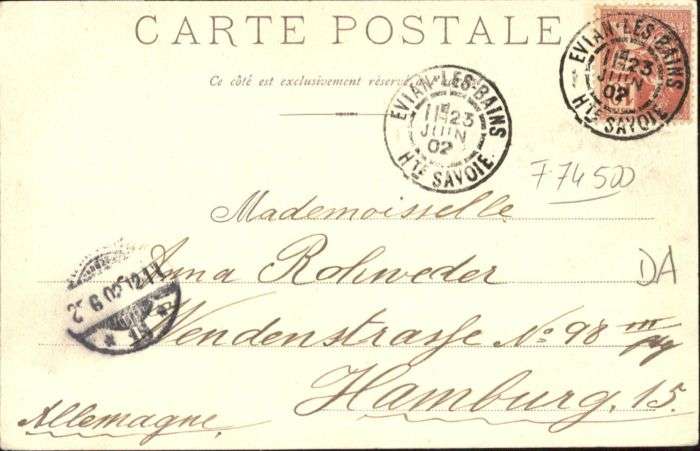 CARTE POSTALE
Ce côté est exclusivement réservé
EVIAN-LES-BAINS
23
JUIN
02
HTE SAVOIE
EVIAN-LES-BAINS
23
JUIN
02
HTE SAVOIE
F 74500
DA
Mademoisselle
Anna Rohweder
Wendenstrasse No 98 III
Hamburg, 15.
Allemagne.